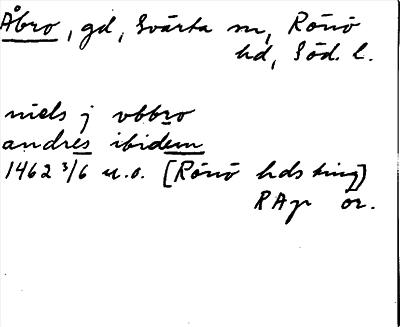 Åbro, gd, Svärta sn, Rönö
hd, Söd. l.
niels j obbro
andres ibidem
1462 3/6 u.o. [Rönö hds ting]
RAp or.